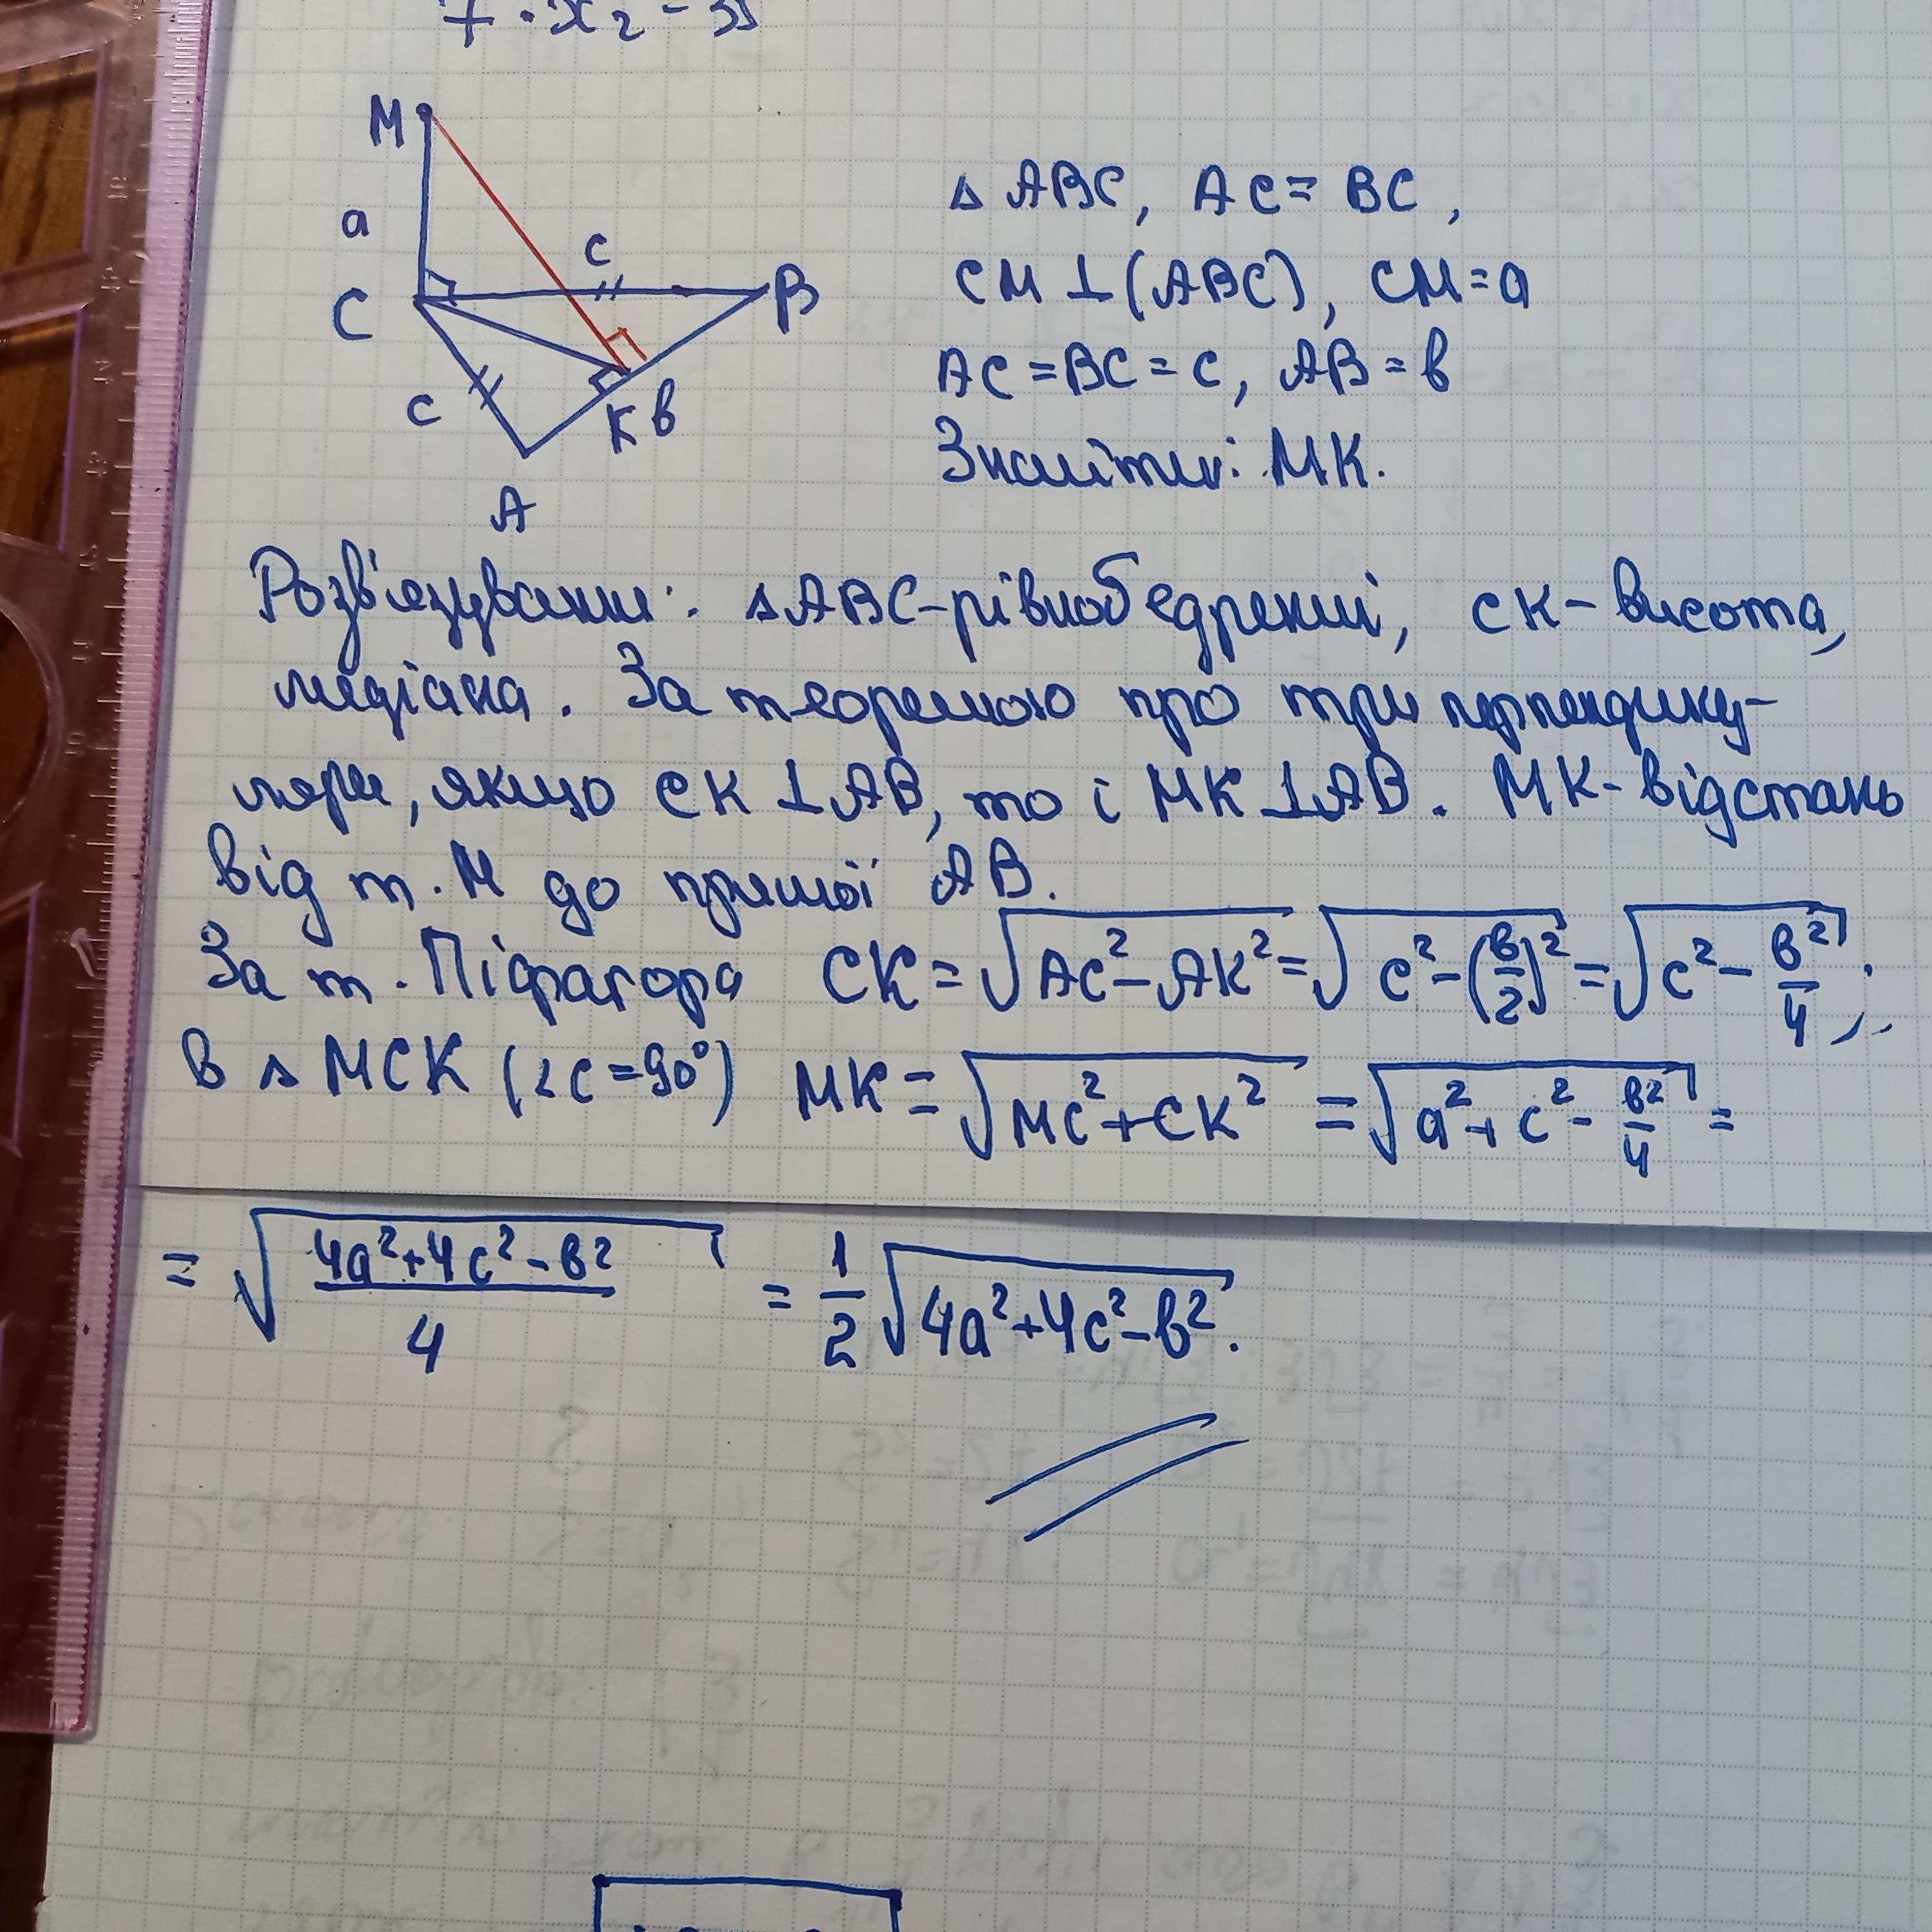 7 · x₂ = 35
M
a
C
c
B
c
K в
A
△ ABC, AC = BC,
CM ⊥ (ABC), CM = a
AC = BC = c, AB = в
Знайти: MK.
Розв'язування: △ABC - рівнобедрений, CK - висота,
медіана. За теоремою про три перпендику-
ляри, якщо CK ⊥ AB, то і MK ⊥ AB. MK - відстань
від т. M до прямої AB.
За т. Піфагора CK = √(AC² - AK²) = √(c² - (в/2)²) = √(c² - в²/4);
В △ MCK (∠C = 90°) MK = √(MC² + CK²) = √(a² + c² - в²/4) =
= √((4a² + 4c² - в²)/4) = 1/2 √(4a² + 4c² - в²).